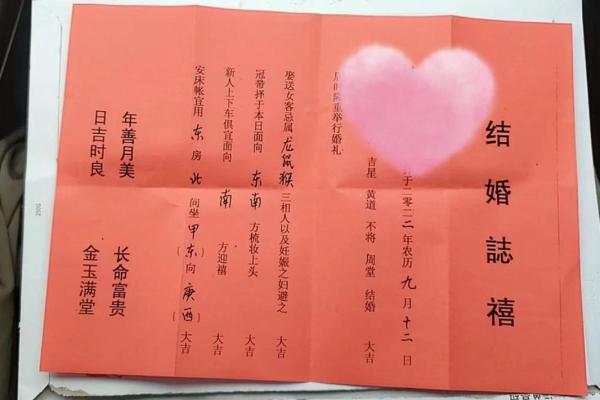 结婚誌禧
于二零二二年农历九月十二日
吉星 黄道 不将 周堂 结婚 大吉
时隆重举行婚礼
娶送女客忌属龙鼠猴三相人以及妊娠之妇避之 大吉
冠带择于本日面向东南方梳妆上头 大吉
新人上下车俱宜面向南方迎禧 大吉
安床帐宜用东房北间坐(甲东)向(庚西) 大吉
年善月美 长命富贵
日吉时良 金玉满堂